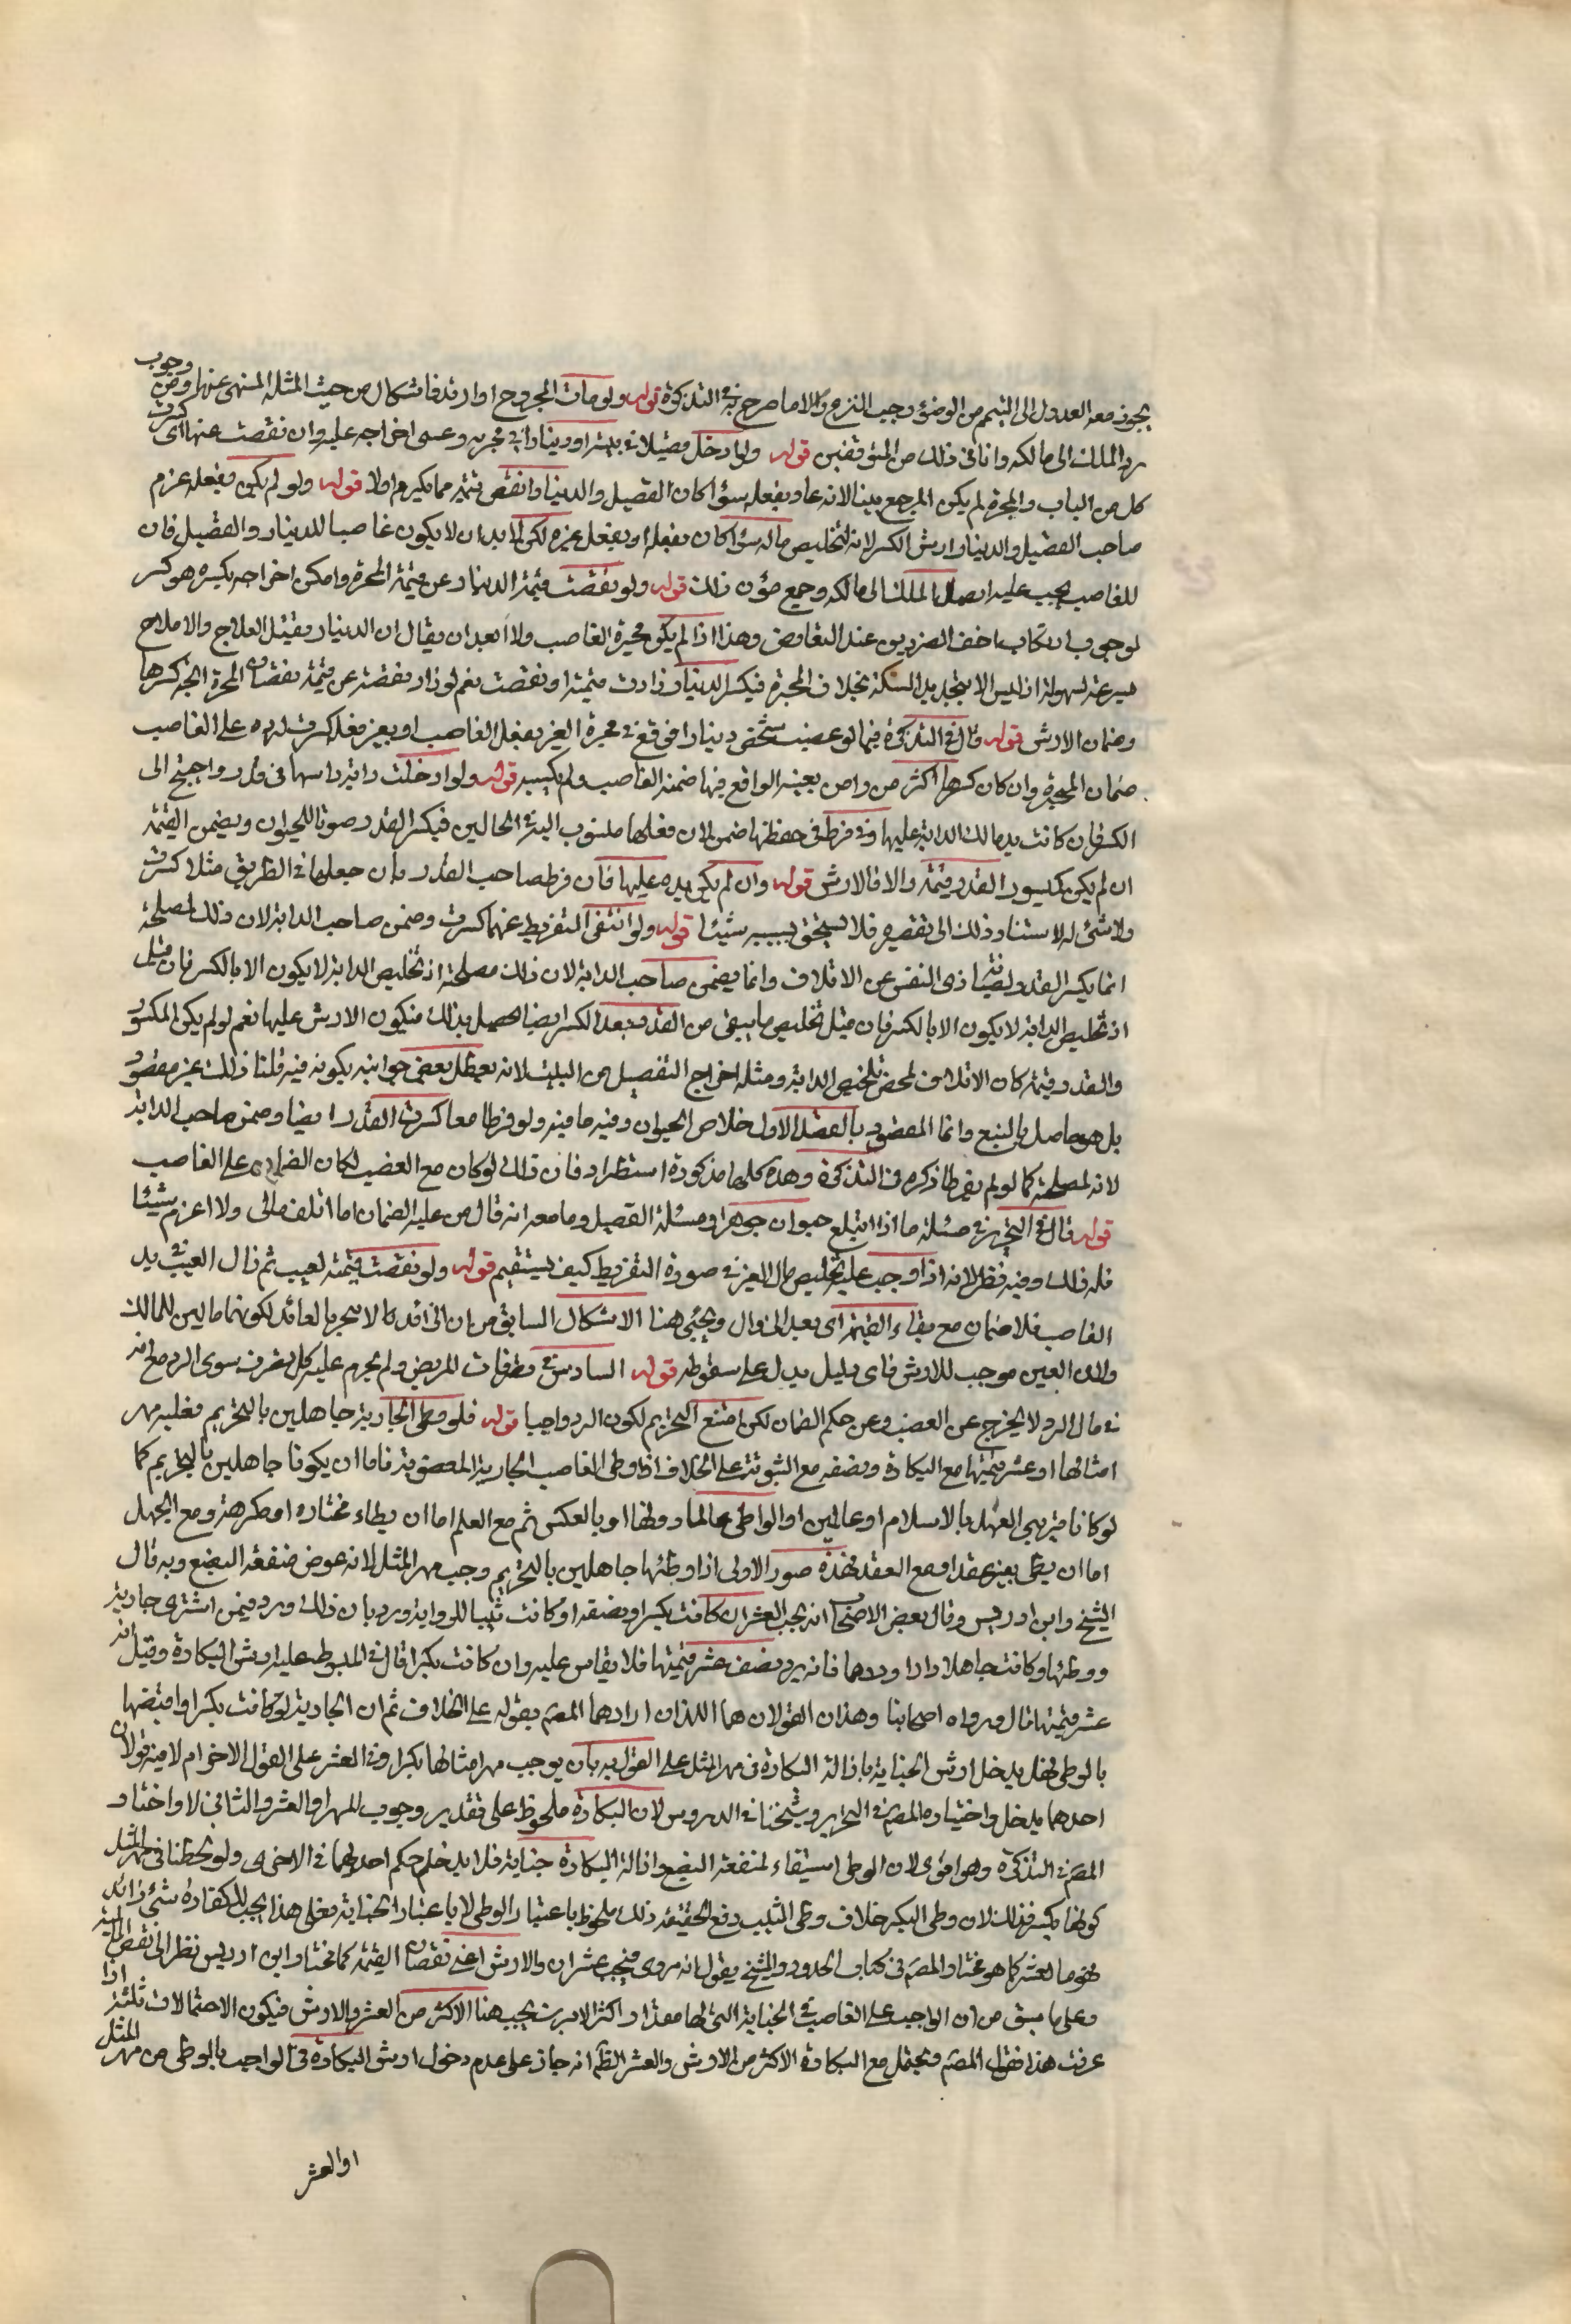 يجوز معه العدول الى التيمم من الوضوء وجب النزع والا لا ما صرح به في التذكرة قوله ولو مات المجروح او ارتد فاشكال من حيث المثلة المنهى عنها ومن وجوب
رد الملك الى مالكه وانا في ذلك من المتوقفين قوله ولو ادخل فصيلا في بيته او دينارا في محبرته وعسى اخراجه عليه وان نقصت عنها اى كسرت
كل من الباب والمحبرة لم يكن المرجع بينا لانه عاد بفعله سؤا كان الفصيل والدينار انقص قيمة مما يكسر ام لا قوله ولو لم يكن بفعله غرم
صاحب الفصيل والدينار ارش الكسر لانه لتخليص ماله سؤا كان بفعله او بفعل غيره لكن لابد ان لا يكون غاصبا للدينار والفصيل فان
للغاصب يجب عليه ايصال الملك الى مالكه وجميع مؤن ذلك قوله ولو نقصت قيمة الدينار عن قيمة المحبرة وامكن اخراجه بكسره هو كسر
لوجوب ارتكاب اخف الضررين عند التعارض وهذا اذا لم يكن محبرة الغاصب ولا ابعد ان يقال ان الدينار يقبل العلاج والاصلاح
بسرعة لسهولة اذ ليس الا بتجديد السكة بخلاف المحبرة فيكسر الدينار زادت قيمته او نقصت نعم لو زاد نقصه عن قيمة نقصان المحبرة اتجه كسرها
وضمان الارش قوله قال في التذكرة فيما لو غصب شخص دينارا فوقع في محبرة الغير بفعل الغاصب او بغير فعله كسرت لرده على الغاصب
ضمان المحبرة وان كان كسرها اكثر ضررا من بعينه الواقع فيها ضمنه الغاصب ولم يكسر قوله ولو ادخلت دابة راسها في قدر واحتيج الى
الكسر فان كانت يد مالك الدابة عليها او فرط في حفظها ضمن لان فعلها منسوب اليه في الحالين فيكسر القدر صونا للحيوان ويضمن القيمة
ان لم يكن لمكسور القدر قيمة والا فالارش قوله وان لم يكن يده عليها فان فرط صاحب القدر بان جعلها في الطريق مثلا كسرت
ولا شئ له لاستناد ذلك الى تقصيره فلا يستحق بسببه شيئا قوله ولو انتفى التفريط عنهما كسرت وضمن صاحب الدابة لان ذلك لمصلحة
انما يكسر القدر لصيانة ذى النفس عن الاتلاف وانما يضمن صاحب الدابة لان ذلك مصلحة اذ تخليص الدابة لا يكون الا بالكسر فان قيل
اذ تخليص الدابة لا يكون الا بالكسر فان قيل تخليص ما يبقى من القدر بعد الكسر ايضا حصل بذلك فيكون الارش عليها نعم لو لم يكن لمكسور
والقدر قيمة كان الاتلاف لمحض تلخيص الدابة ومثله اخراج الفصيل من البيت لانه يعطل بعض جوانبه بكونه فيه قلنا ذلك غير مقصود
بل هو حاصل بالتبع وانما المقصود بالقصد الاول خلاص الحيوان وفيه ما فيه ولو فرطا معا كسرت القدر ايضا وضمن صاحب الدابة
لانه لمصلحته كما لو لم يفرطا ذكره في التذكرة وهذه كلها مذكورة استطراد فان ذلك لو كان مع الغصب لكان الضرر على الغاصب
قوله قال في التحرير في مسئلة ما اذا ابتلع حيوان جوهرا ومسئلة الفصيل وما معه انه قال من عليه الضمان اما اتلف مالى ولا اغرم شيئا
فله ذلك وفيه نظر لانه اذا وجب عليه تخليص مال الغير في صورة التفريط كيف يستقيم قوله ولو نقصت قيمته لعيب ثم زال العيب في يد
الغاصب فلا ضمان مع بقاء القيمة اى بعد الزوال ويجئ هنا الاشكال السابق من ان الزائد الا لا ينجبر بالعائد لكونهما ماليين للمالك
ولان العين موجب للارش فاى دليل يدل على سقوطه قوله السادس في تصرفات المريض ولم يحرم عليه كل تصرف سوى الرد مع انه
في مال الرد لا يخرج عن الغصب وعن حكم الضمان لكن امتنع التحريم لكون الرد واجبا قوله فلو وطى الجارية جاهلين بالتحريم فعليه مهر
امثالها او عشر قيمتها مع البكارة ونصفه مع الثيوبة على الخلاف اذا وطى الغاصب الجارية المغصوبة فاما ان يكونا جاهلين بالتحريم كما
لو كانا قريبي العهد بالاسلام او عالمين او الواطى عالما دونها او بالعكس ثم مع العلم اما ان يطاء مختارة او مكرهة ومع الجهل
اما ان يطى بغير عقد او مع العقد فهذه صور الاولى اذا وطئها جاهلين بالتحريم وجب مهر المثل لانه عوض منفعة البضع وبه قال
الشيخ وابن ادريس وقال بعض الاصحاب انه يجب العشر ان كانت بكرا ونصفه او كانت ثيبا للرواية ورد بان ذلك ورد فيمن اشترى جارية
ووطئها وكانت حاملا واراد ردها فانه يرد نصف عشر قيمتها فلا يقاس عليه وان كانت بكرا قال في المبسوط عليه ارش البكارة وقيل انه
عشر قيمتها قال ورواه اصحابنا وهذان القولان هما اللذان ارادهما المصم بقوله على الخلاف ثم ان الجارية لو كانت بكرا وافتضها
بالوطى فهل يدخل ارش الجناية بازالة البكارة في مهر المثل على القول به بان يوجب مهر امثالها بكرا وفي العشر على القول الاخر ام لا فيه قولان
احدهما يدخل واختياره المصم في التحرير وشيخنا في الدروس لان البكارة ملحوظ على تقدير وجوب المهر او العشر والثاني لا واختاره
المصم في التذكرة وهو اقوى لان الوطى استيفاء لمنفعة البضع وازالة البكارة جناية فلا يدخل حكم احدهما في الاخرى ولو لحظنا في مهر المثل
كونها بكرا فذلك لان وطى البكر خلاف وطى الثيب دفع الحقيقة ذلك ملحوظ باعتبار الوطى لا باعتبار الجناية فعلى هذا يجب للبكارة شئ زائد
فهو ما العشر كما هو مختار المصم في كتاب الحدود والشيخ يقول انه مروى فيجب عشران والارش اعني نقصان القيمة كما مختار ابن ادريس نظرا الى نقص المالية
وعلى ما سبق من ان الواجب على الغاصب في الجناية التى لها مقدار اكثر الامرين يجب هنا الاكثر من العشر والارش فيكون الاحتمالات ثلثة اذا
عرفت هذا فقول المصم ويحتمل مع البكارة الاكثر من الارش والعشر الظ انه جاز على عدم دخول ارش البكارة في الواجب بالوطى من مهر المثل
او العشر